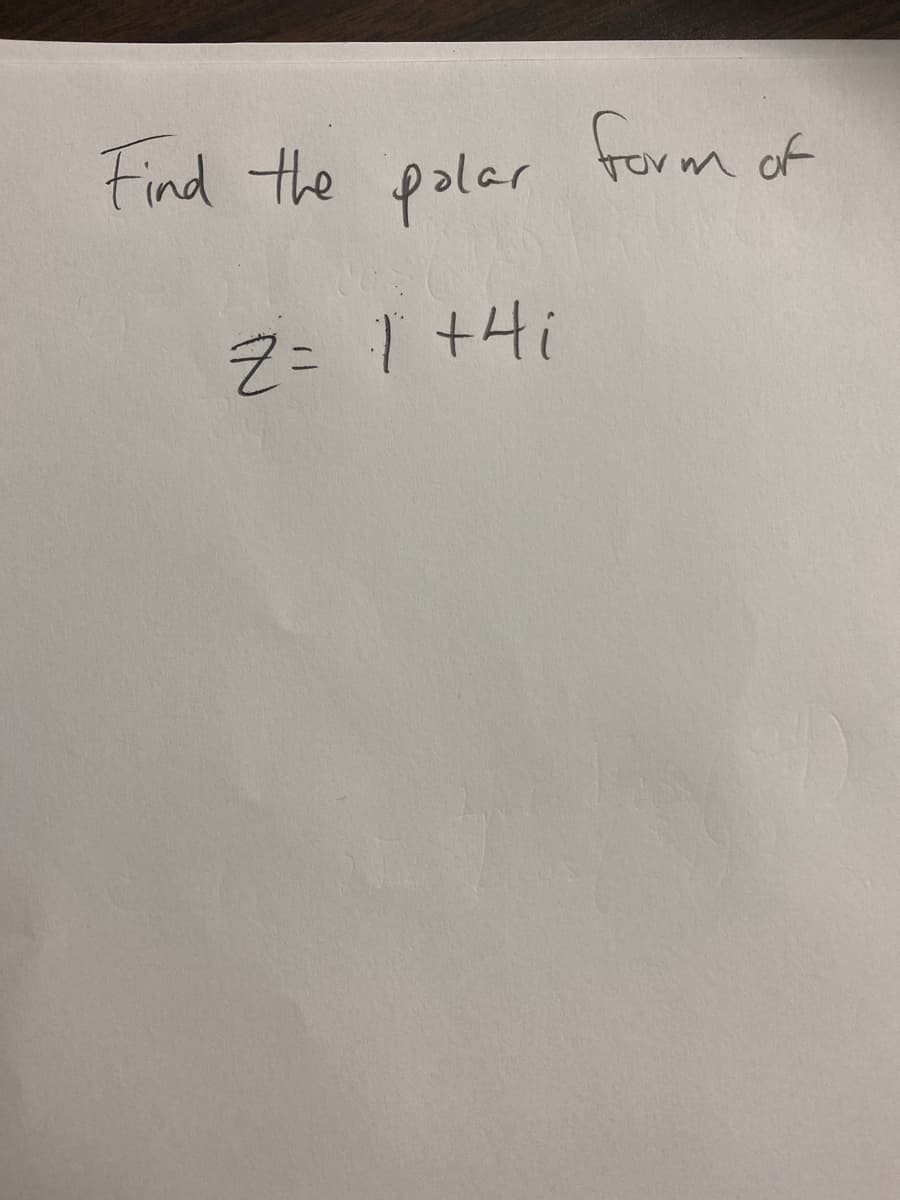 Find the polar form of
z = 1 + 4i